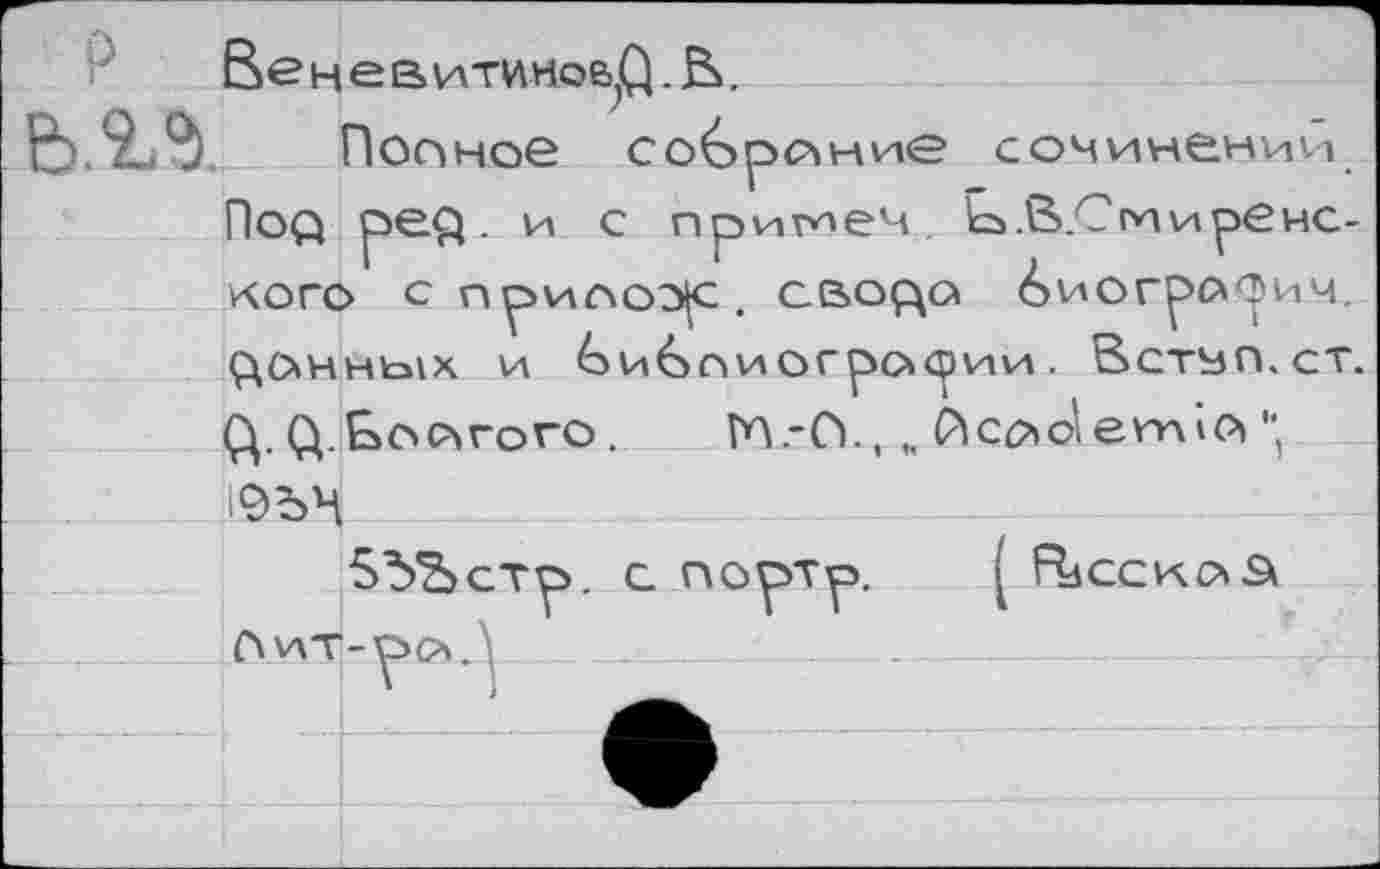 Р Веневитинов, Д. В.
В.29. Полное собрание сочинений.
Под ред. и с примеч. Б.В.Смиренс-
кого с прилож. свода биографич.
данных и библиографии. Вступ. ст.
Д. Д. Благого. М.-Л., „Academia",
1934
533 стр. с портр. (Русская
лит-ра.)